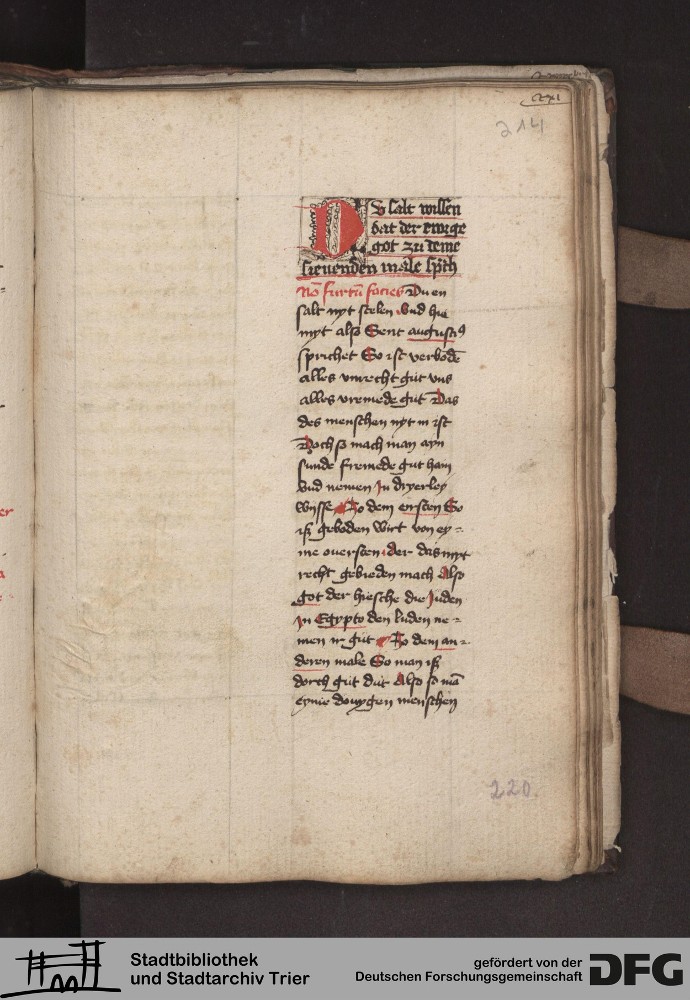 ccxi
214
DU salt wissen
dat der ewige
got zu deme
sieuenden male sp̄ch
Nō furtū facies Du en
salt nyt stelen Vnd hie
myt also Sent augustꝰ
sprichet So ist verbodē
alles vnrecht gut vns
alles vremede gut Das
des menschen nyt in ist
Doch so mach man ayn
sunde fremede gut ham
Vnd nemen In dryerley
wysse Zo dem ersten So
iß geboden wirt von ey=
me ouersten der das myt
recht gebieden mach Also
got der hiesche die Juden
In Egypto den luden ne=
men ir gut Zo dem an=
deren male So man iß
dorch gut dut Also so mā
eynie douygen menschen
220.
Stadtbibliothek
und Stadtarchiv Trier
gefördert von der
Deutschen Forschungsgemeinschaft
DFG